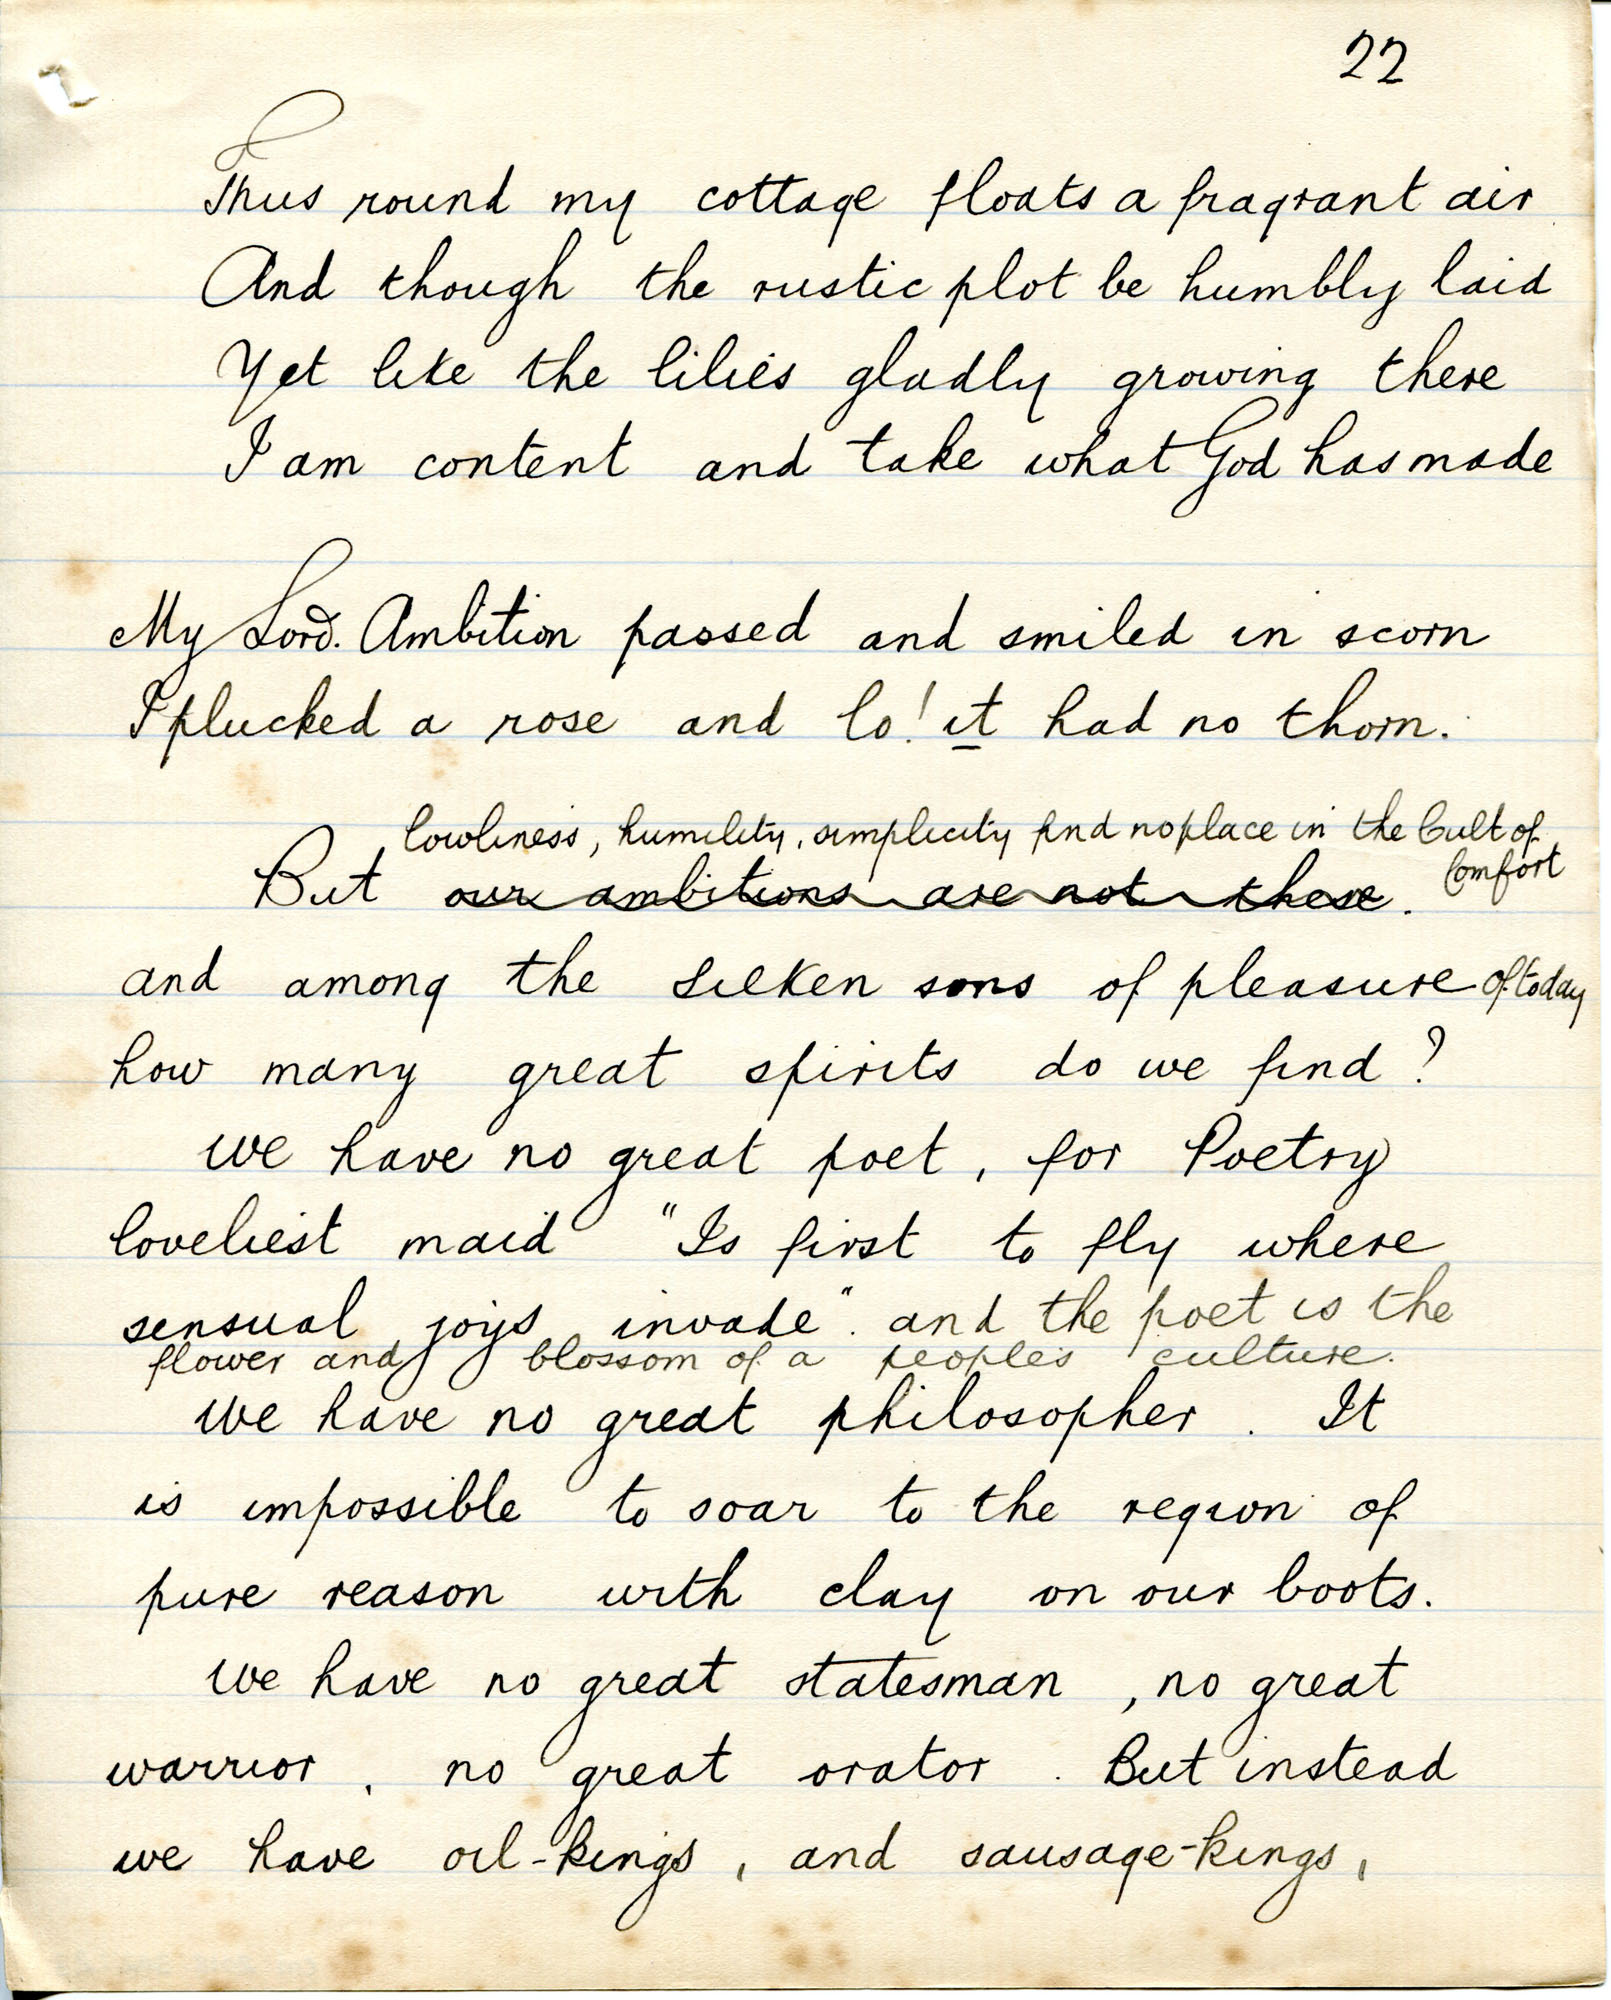 22
Thus round my cottage floats a fragrant air
And though the rustic plot be humbly laid
Yet like the lilies gladly growing there
I am content and take what God has made
My Lord. Ambition passed and smiled in scorn
I plucked a rose and lo! it had no thorn.
lowliness, humility, simplicity find no place in the Cult of
Comfort
But our ambitions are not these.
and among the silken sons of pleasure of today
how many great spirits do we find?
We have no great poet, for Poetry
loveliest maid "Is first to fly where
sensual joys invade". and the poet is the
flower and blossom of a peoples culture.
We have no great philosopher. It
is impossible to soar to the region of
pure reason with clay on our boots.
We have no great statesman, no great
warrior, no great orator. But instead
we have oil-kings, and sausage-kings,